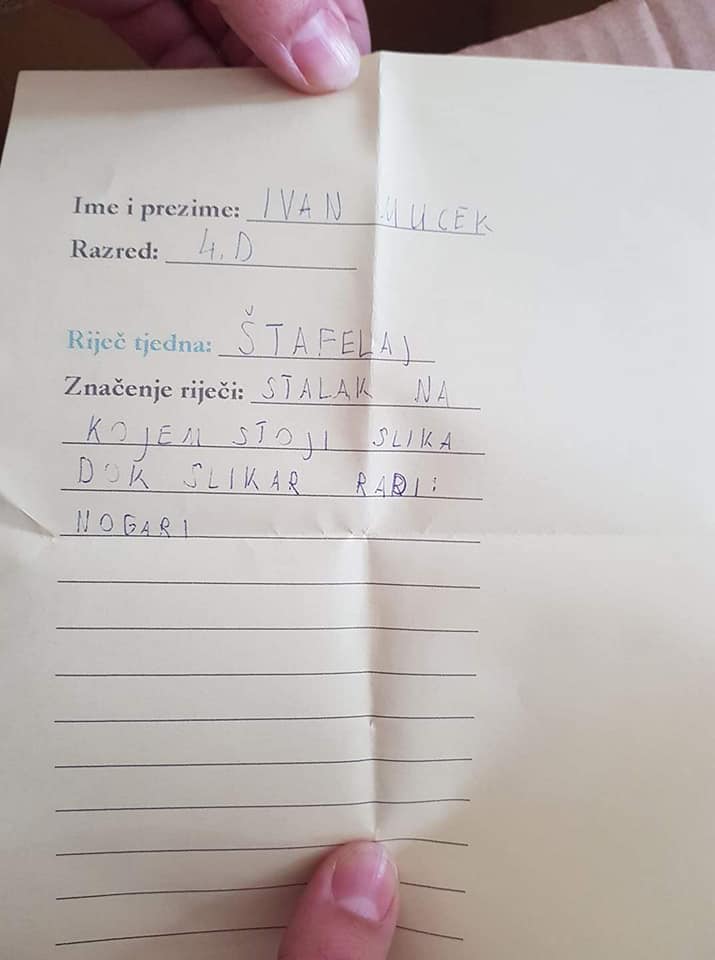 Ime i prezime: IVAN MUCEK
Razred: 4. D
Riječ tjedna: ŠTAFELAJ
Značenje riječi: STALAK NA
KOJEM STOJI SLIKA
DOK SLIKAR RADI:
NOGARI